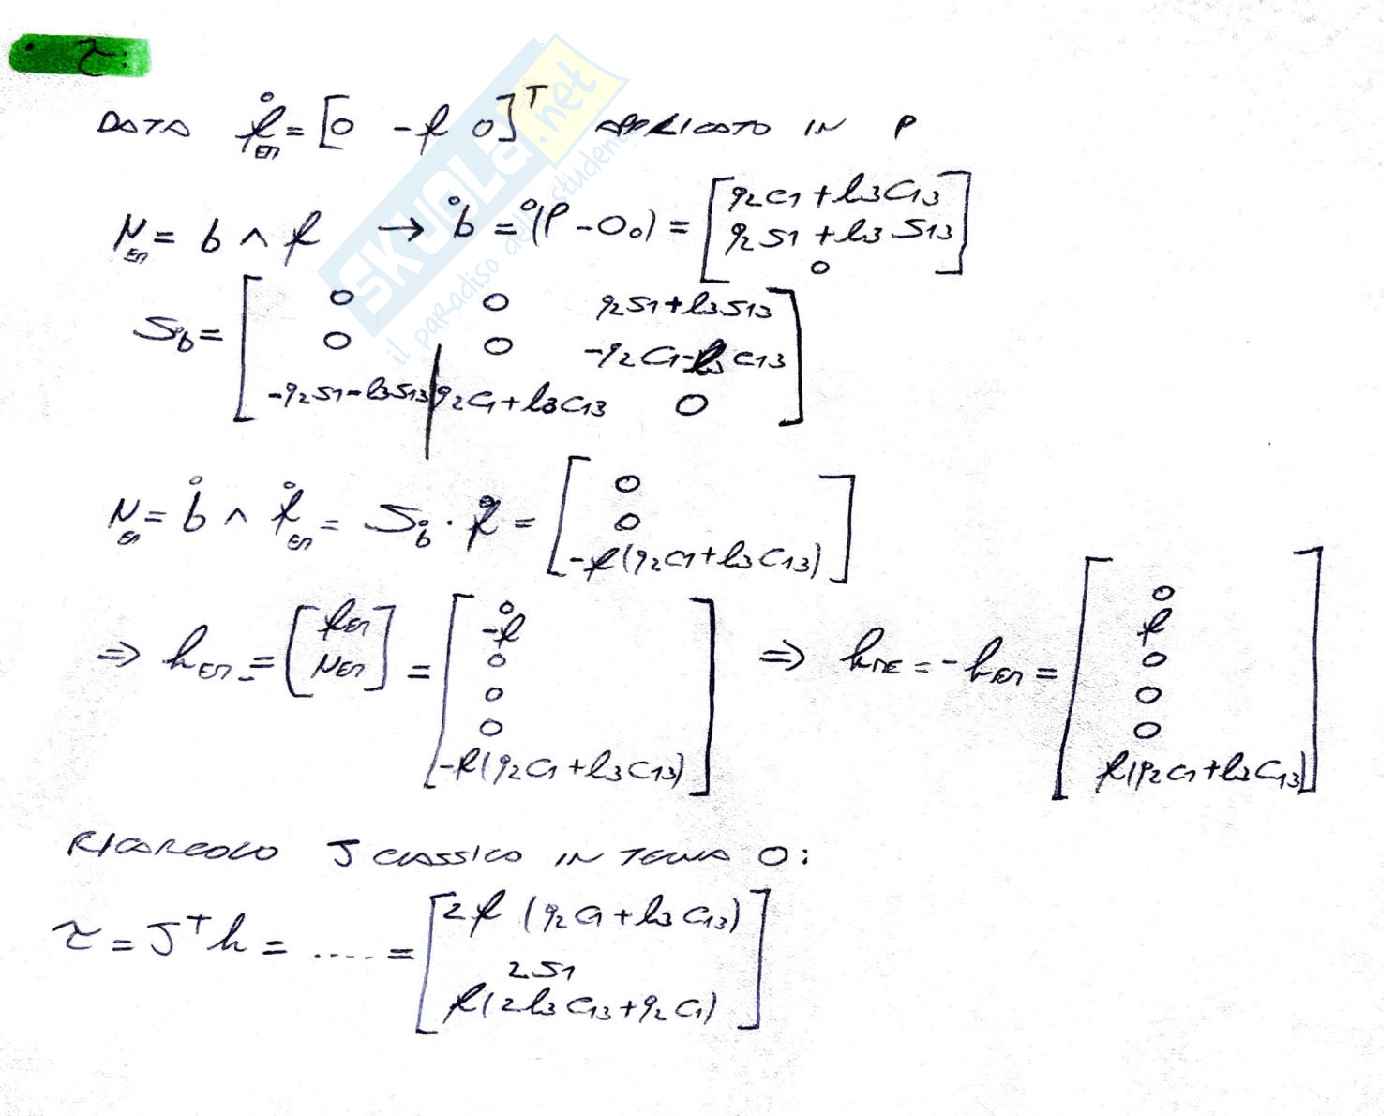 τ:
DATA ⁰f_EM = [0 -f 0]ᵀ APPLICATO IN P
N_EM = b ∧ f → ⁰b = ⁰(P - O₀) = [q2c1 + l3c13 ; q2s1 + l3s13 ; 0]
S_b = [0 0 q2s1+l3s13 ; 0 0 -q2c1-l3c13 ; -q2s1-l3s13 q2c1+l3c13 0]
N_EM = ⁰b ∧ ⁰f_EM = S_⁰b · ⁰f = [0 ; 0 ; -f(q2c1+l3c13)]
⇒ h_EM = [f_EM ; N_EM] = [0 ; -f ; 0 ; 0 ; 0 ; -f(q2c1+l3c13)] ⇒ h_ME = -h_EM = [0 ; f ; 0 ; 0 ; 0 ; f(q2c1+l3c13)]
RICALCOLO J CLASSICO IN TERNA 0:
τ = Jᵀh = ..... = [2f(q2c1+l3c13) ; 2s1 ; f(2l3c13+q2c1)]
SKUOLA.net
il paradiso dello studente